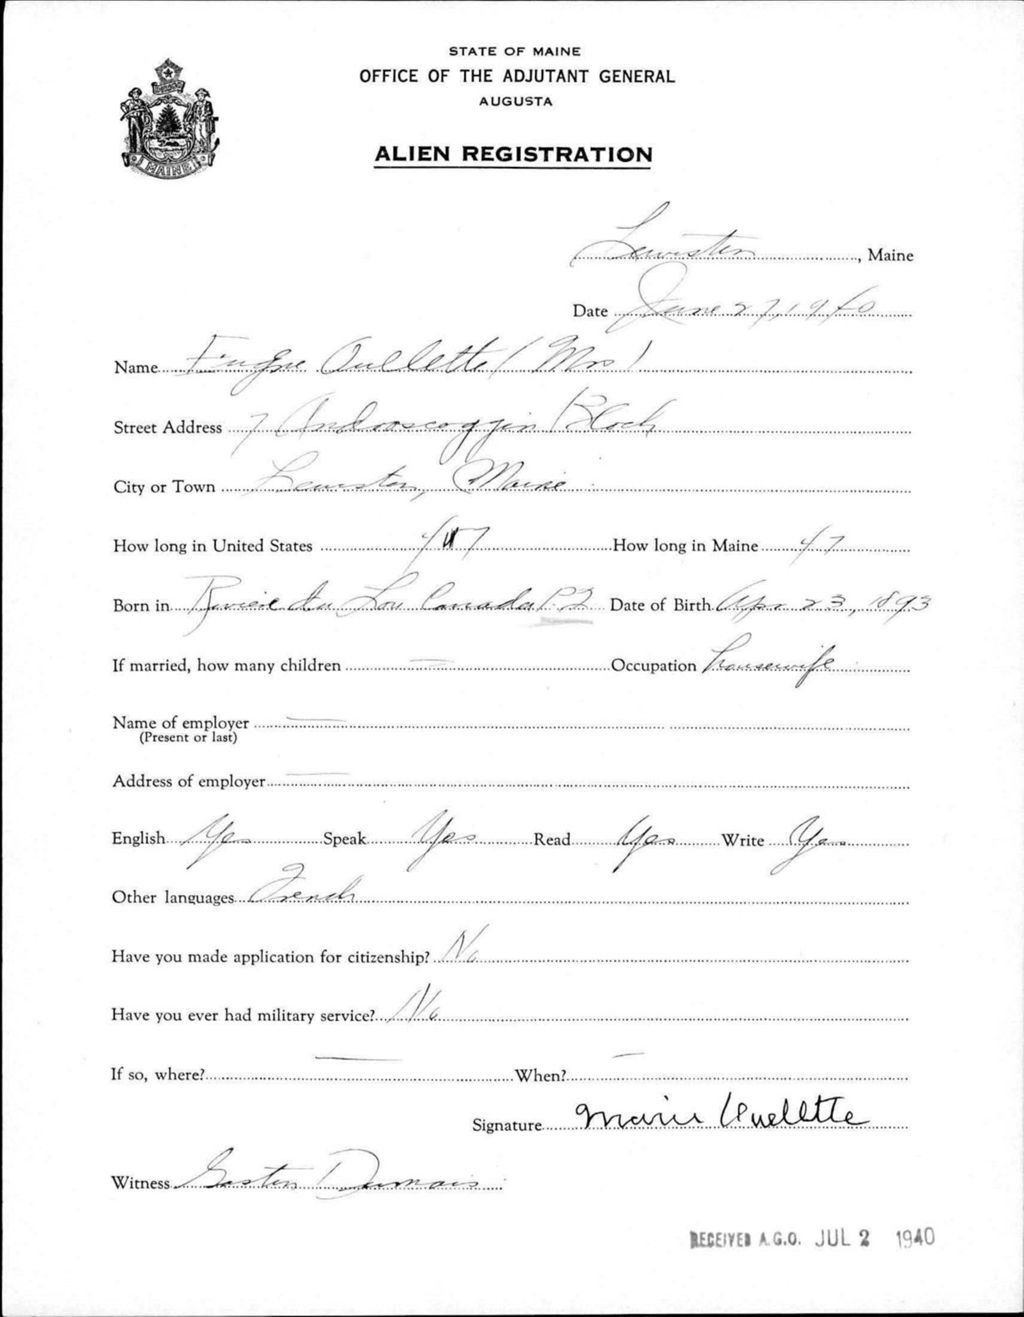 STATE OF MAINE
OFFICE OF THE ADJUTANT GENERAL
AUGUSTA
ALIEN REGISTRATION
MAINE
Lewiston, Maine
Date June 27, 1940
Name Eugne Ouellette (Mrs)
Street Address 7 Androscoggin Block
City or Town Lewiston, Maine
How long in United States 47 How long in Maine 47
Born in Riviere du Lou Canada P.Q Date of Birth Apr 23, 1893
If married, how many children — Occupation housewife
Name of employer —
(Present or last)
Address of employer —
English Yes Speak Yes Read Yes Write Yes
Other languages French
Have you made application for citizenship? No
Have you ever had military service? No
If so, where? — When? —
Signature Marie Ouellette
Witness Gaston Dumais
RECEIVED A.G.O. JUL 2 1940